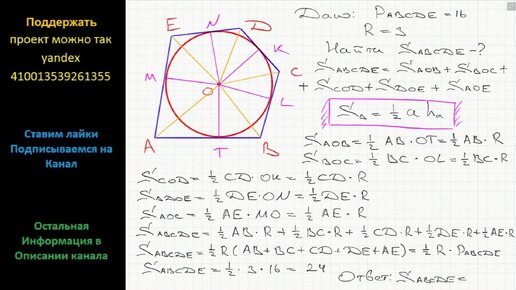 Поддержать
проект можно так
yandex
410013539261355
Ставим лайки
Подписываемся на
Канал
Остальная
Информация в
Описании канала
E N D
K
M O C
L
A T B
Дано: P_ABCDE = 16
R = 3
Найти S_ABCDE - ?
S_ABCDE = S_AOB + S_BOC +
+ S_COD + S_DOE + S_AOE
S_Δ = ½ a h_a
S_AOB = ½ AB · OT = ½ AB · R
S_BOC = ½ BC · OL = ½ BC · R
S_COD = ½ CD · OK = ½ CD · R
S_DOE = ½ DE · ON = ½ DE · R
S_AOE = ½ AE · MO = ½ AE · R
S_ABCDE = ½ AB · R + ½ BC · R + ½ CD · R + ½ DE · R + ½ AE · R
S_ABCDE = ½ R (AB + BC + CD + DE + AE) = ½ R · P_ABCDE
S_ABCDE = ½ · 3 · 16 = 24
Ответ: S_ABCDE =